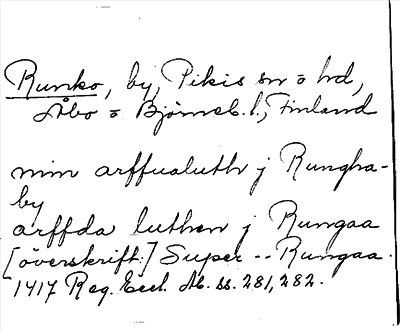 Runko, by, Pikis sn o hd,
Åbo o Björneb. l., Finland
min arffualuth j Rungha-
by
arffda luthen j Rungaa
[överskrift:] Super -- Rungaa.
1417 Reg. Eccl. Ab. ss. 281, 282.